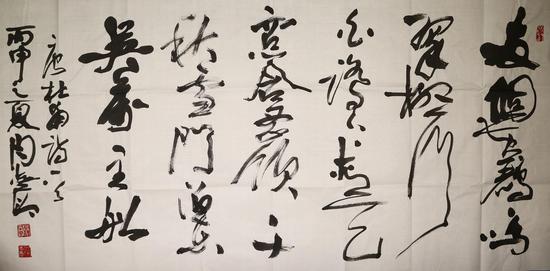 两個黄鹂鳴
翠柳一行
白鹭上青天
窗含西嶺千
秋雪門泊東
吴萬里船
唐杜甫詩一首
丙申之夏